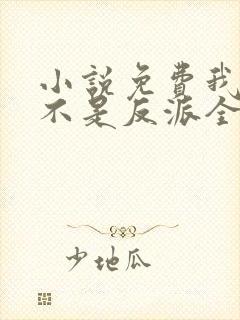 小说免费我
不是反派全
少地瓜